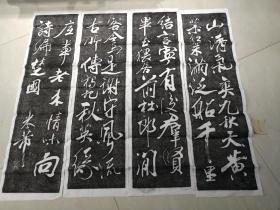 山清氣爽九秋天黄
菊紅茱滿泛船千里
結言寧有後群賢
畢至猥居前杜郎閑
客今焉是謝守風流
古所傳獨把秋英緣
底事老來情味向
詩篇 楚國 米芾